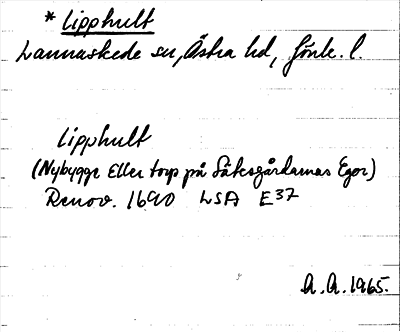 * Lipphult
Lannaskede sn, Östra hd, Jönk. l.
Lipphult
(Nybygge Eller torp på Säksgårdarnas Egor)
Renov. 1690 LSA E37
A. A. 1965.